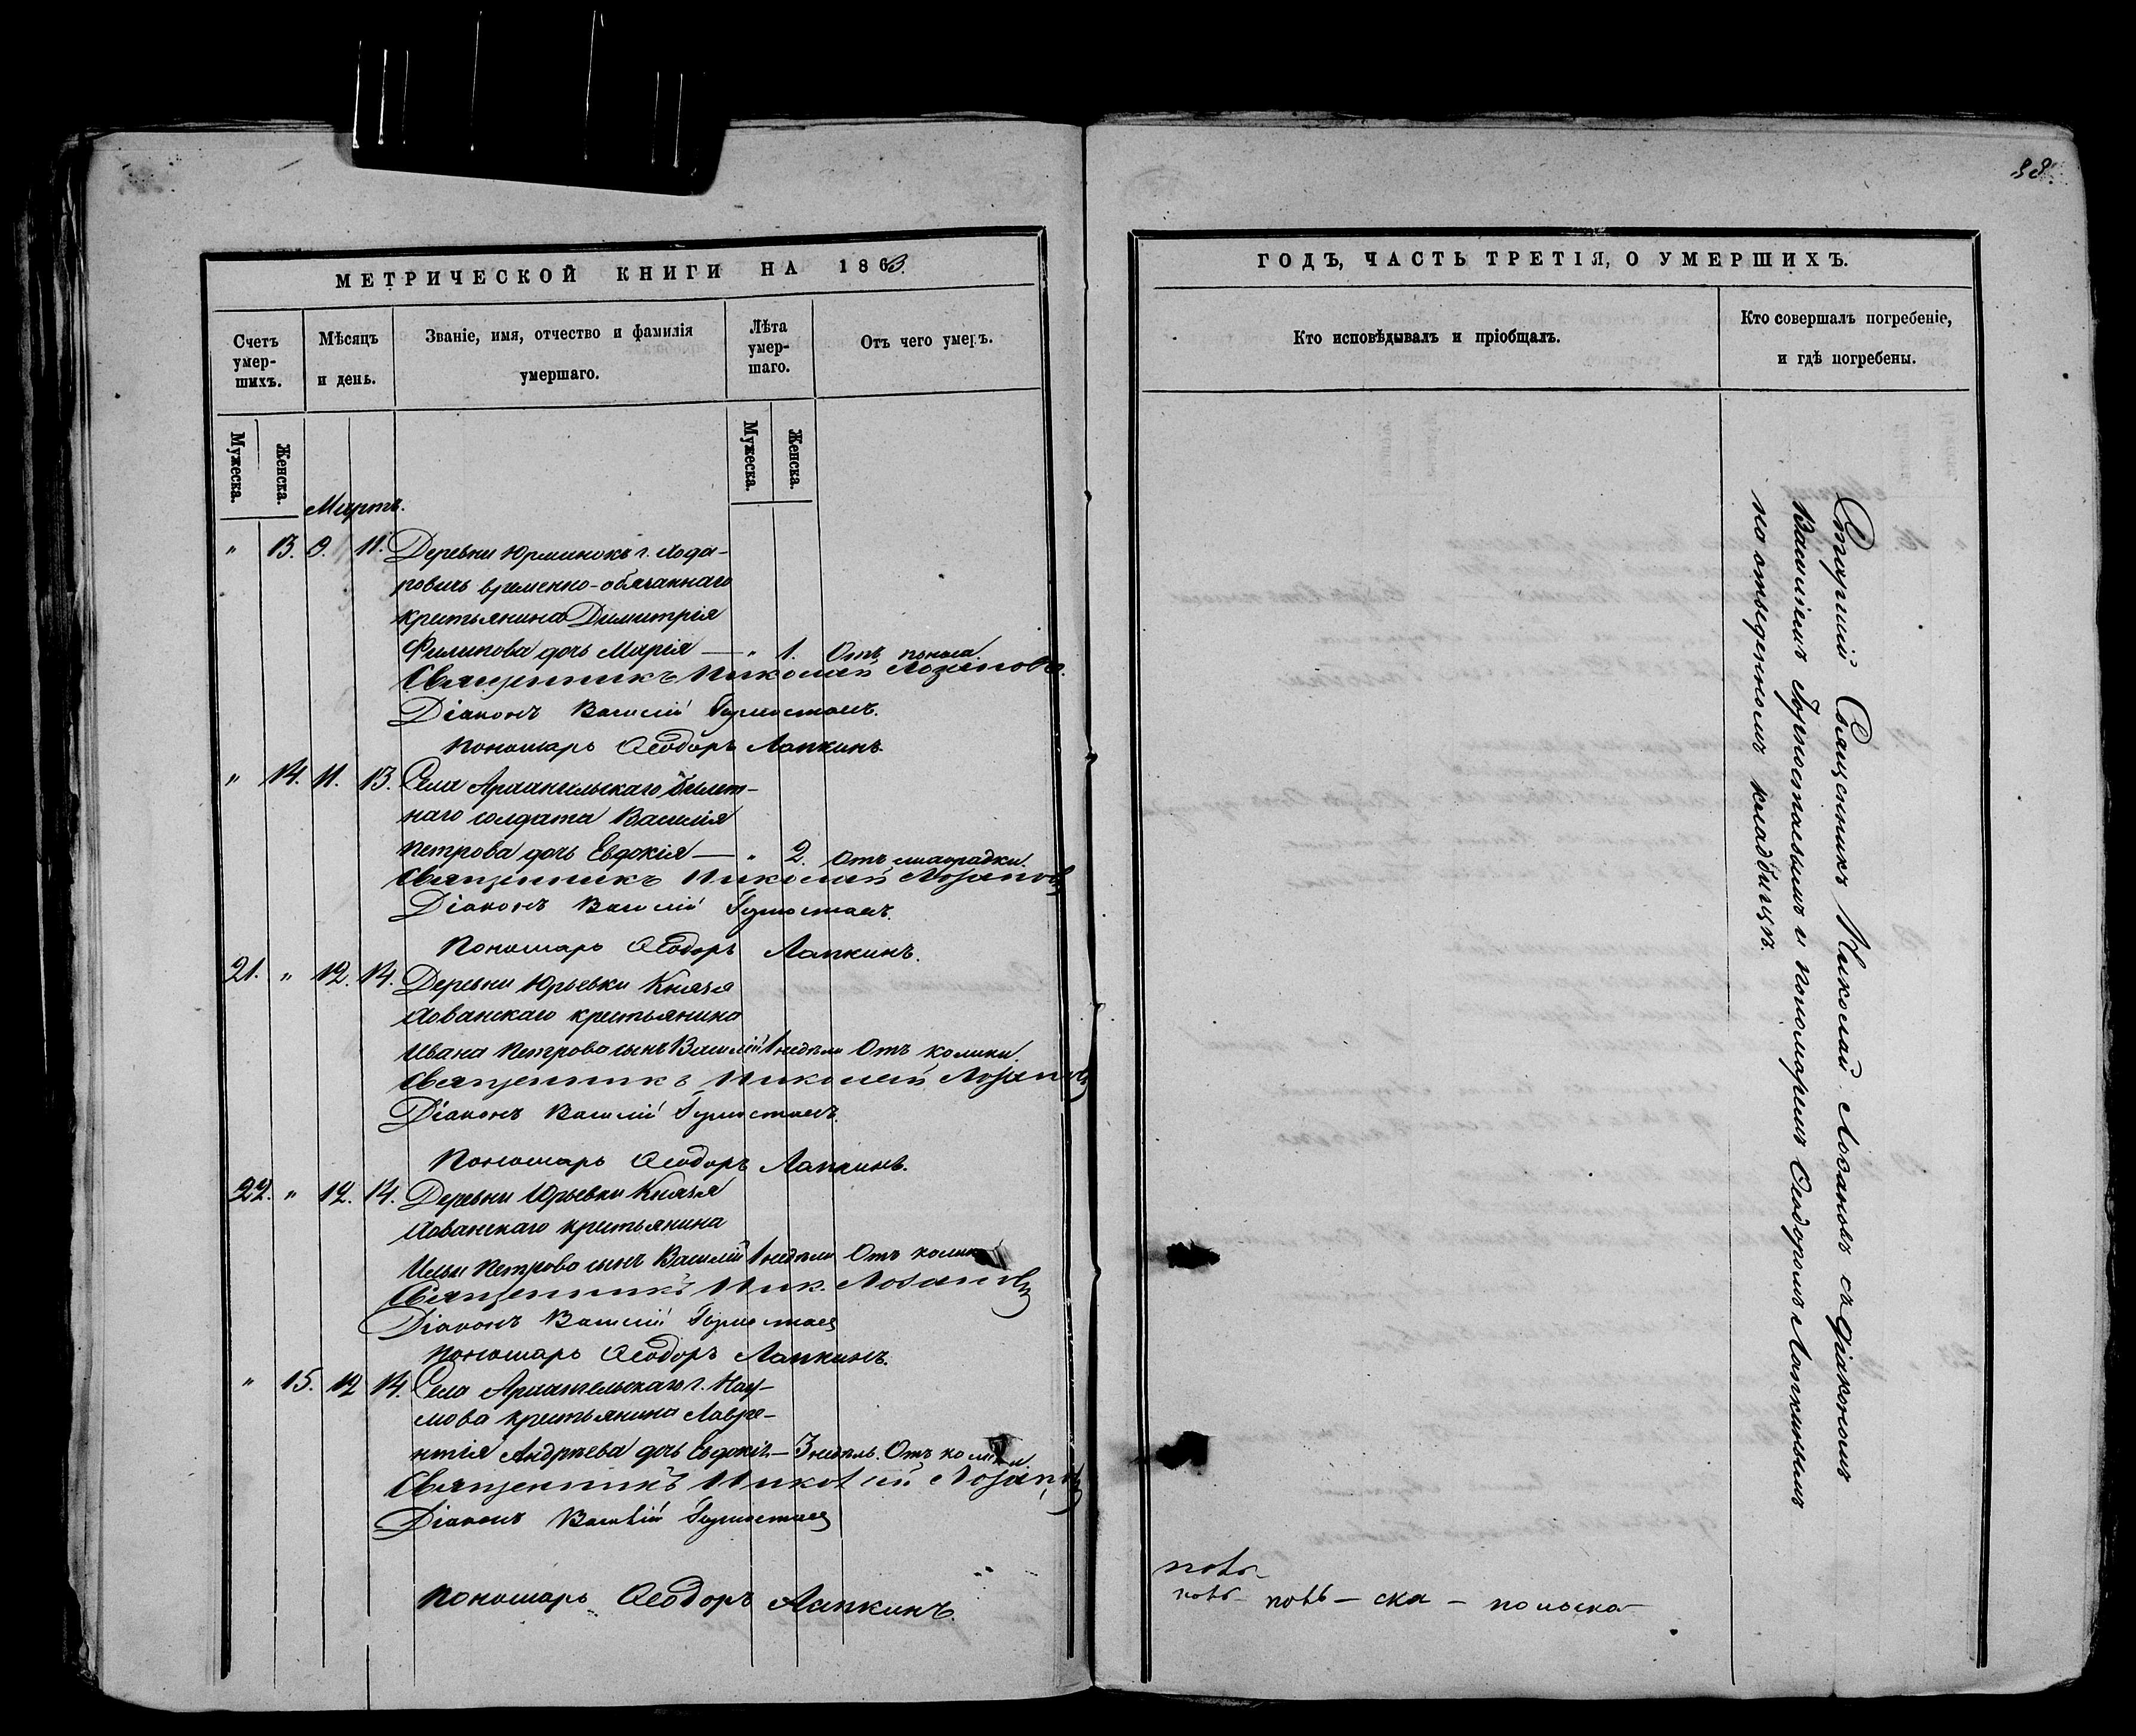 38.
МЕТРИЧЕСКОЙ КНИГИ НА 1863.
Счетъ умер-шихъ.
Мѣсяцъ и день.
Званіе, имя, отчество и фамилія умершаго.
Лѣта умер-шаго.
Отъ чего умеръ.
Мужеска.
Женска.
Мужеска.
Женска.
Мартъ.
" 13. 9. 11. Деревни г.
временно-обязаннаго
крестьянина Димитрія
Филипова дочь Марія — " 1. Отъ поноса.
Священникъ Николай Лозановъ.
Діаконъ Василій Горностаевъ.
Пономарь Ѳеодоръ Лапкинъ.
" 14. 11. 13. Села Архангельскаго билет-
наго солдата Василія
Петрова дочь Евдокія — " 2. Отъ лихорадки.
Священникъ Николай Лозановъ
Діаконъ Василій Горностаевъ.
Пономарь Ѳеодоръ Лапкинъ.
21. " 12. 14. Деревни Юрьевки Князя
Хованскаго крестьянина
Ивана Петрова сынъ Василій 1 недѣли Отъ колики.
Священникъ Николай Лозановъ
Діаконъ Василій Горностаевъ.
Пономарь Ѳеодоръ Лапкинъ.
22. " 12. 14. Деревни Юрьевки Князя
Хованскаго крестьянина
Ильи Петрова сынъ Василій 1 недѣли Отъ колики
Священникъ Ник. Лозановъ
Діаконъ Василій Горностаев
Пономарь Ѳеодоръ Лапкинъ.
" 15. 12 14. Села Архангельскаго г. Нау-
мова крестьянина Лавре-
нтія Андреева дочь Евдокія — 3 недѣль. Отъ колики.
Священникъ Николай Лозановъ
Діаконъ Василій Горностаев
Пономарь Ѳеодоръ Лапкинъ.
ГОДЪ, ЧАСТЬ ТРЕТІЯ, О УМЕРШИХЪ.
Кто исповѣдывалъ и пріобщалъ.
Кто совершалъ погребеніе,
и гдѣ погребены.
Старшій Священникъ Николай Лозановъ съ діакономъ
Василіемъ Горностаевымъ и пономаремъ Ѳеодоромъ Лапкинымъ
на отведенномъ кладбищѣ.